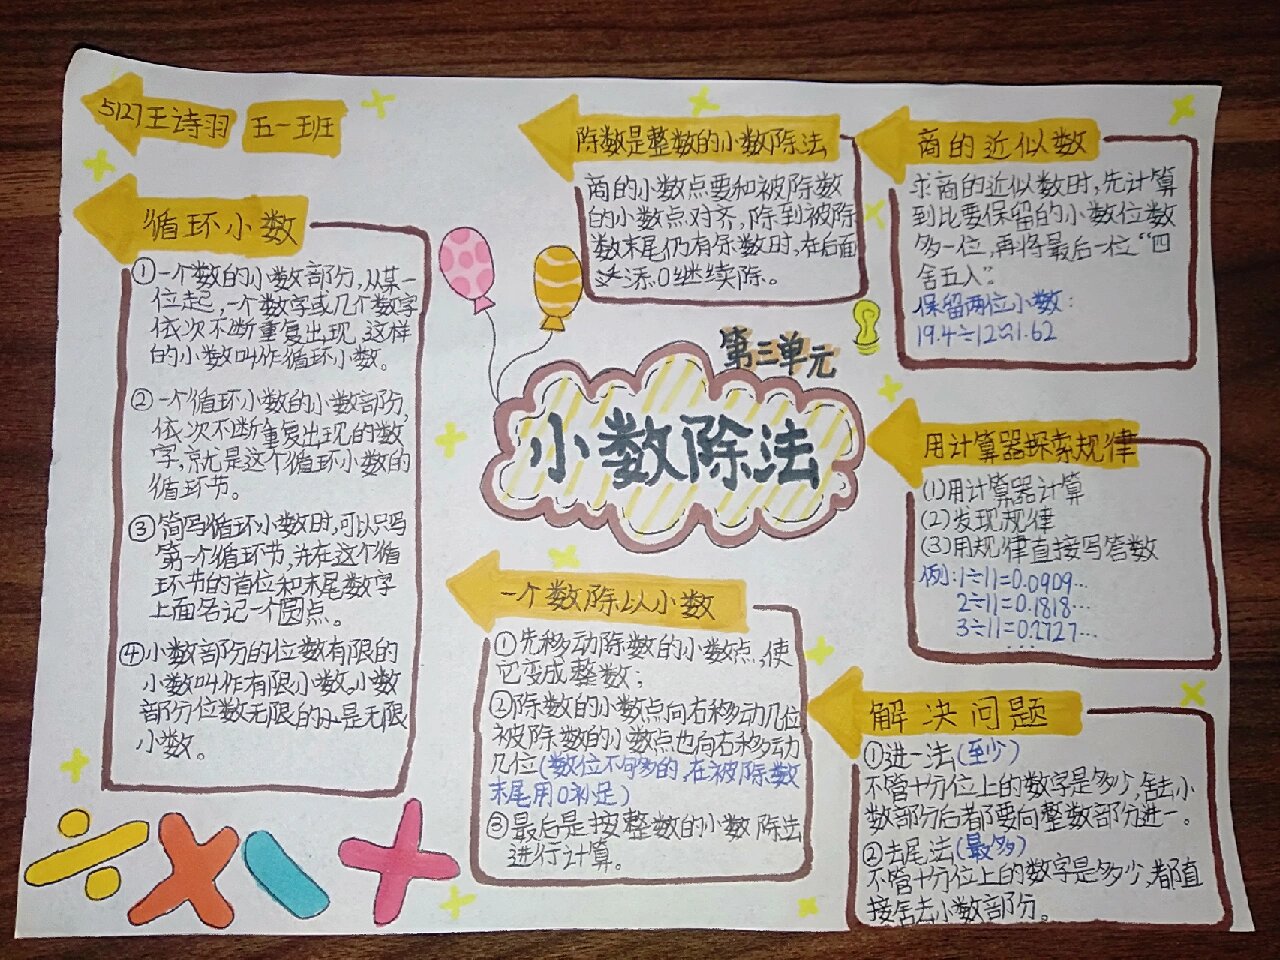 5127王诗羽 五一班
循环小数
①一个数的小数部分,从某一
位起,一个数字或几个数字
依次不断重复出现,这样
的小数叫作循环小数。
②一个循环小数的小数部分,
依次不断重复出现的数
字,就是这个循环小数的
循环节。
③简写循环小数时,可以只写
第一个循环节,并在这个循
环节的首位和末尾数字
上面各记一个圆点。
④小数部分的位数有限的
小数叫作有限小数。小数
部分位数无限的小是无限
小数。
除数是整数的小数除法
商的小数点要和被除数
的小数点对齐,除到被除
数末尾仍有余数时,在后面
添0继续除。
商的近似数
求商的近似数时,先计算
到比要保留的小数位数
多一位,再将最后一位“四
舍五入”。
保留两位小数:
19.4÷12≈1.62
第三单元
小数除法
用计算器探索规律
(1)用计算器计算
(2)发现规律
(3)用规律直接写答数
例:1÷11=0.0909…
2÷11=0.1818…
3÷11=0.2727…
…
一个数除以小数
①先移动除数的小数点,使
它变成整数;
②除数的小数点向右移动几位,
被除数的小数点也向右移动
几位(数位不够的,在被除数
末尾用0补足)
③最后是按整数的小数除法
进行计算。
解决问题
①进一法(至少)
不管十分位上的数字是多少,舍去小
数部分后都要向整数部分进一。
②去尾法(最多)
不管十分位上的数字是多少,都直
接舍去小数部分。